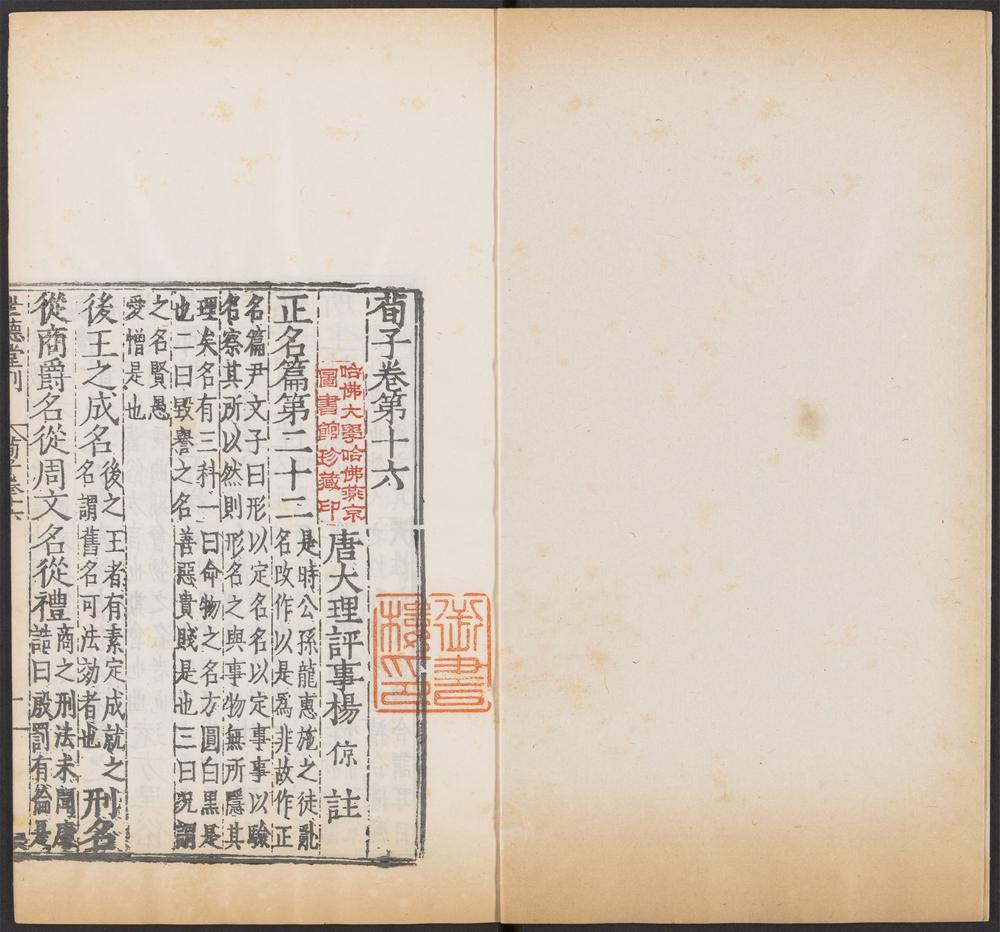 荀子卷第十六
哈佛大學哈佛燕京
圖書館珍藏印
唐大理評事楊倞註
正名篇第二十二
是時公孫龍惠施之徒亂
名改作以是爲非故作正
名篇尹文子曰形以定名名以定事事以驗
名察其所以然則形名之與事物無所隱其
理矣名有三科一曰命物之名方圓白黑是
也二曰毀譽之名善惡貴賤是也三曰況謂
之名賢愚
愛憎是也
後王之成名
後之王者有素定成就之
名謂舊名可法効者也
刑名
從商爵名從周文名從禮
商之刑法未聞康
誥曰殷罰有倫是
世德堂刊
荀子卷十六
書
樓印